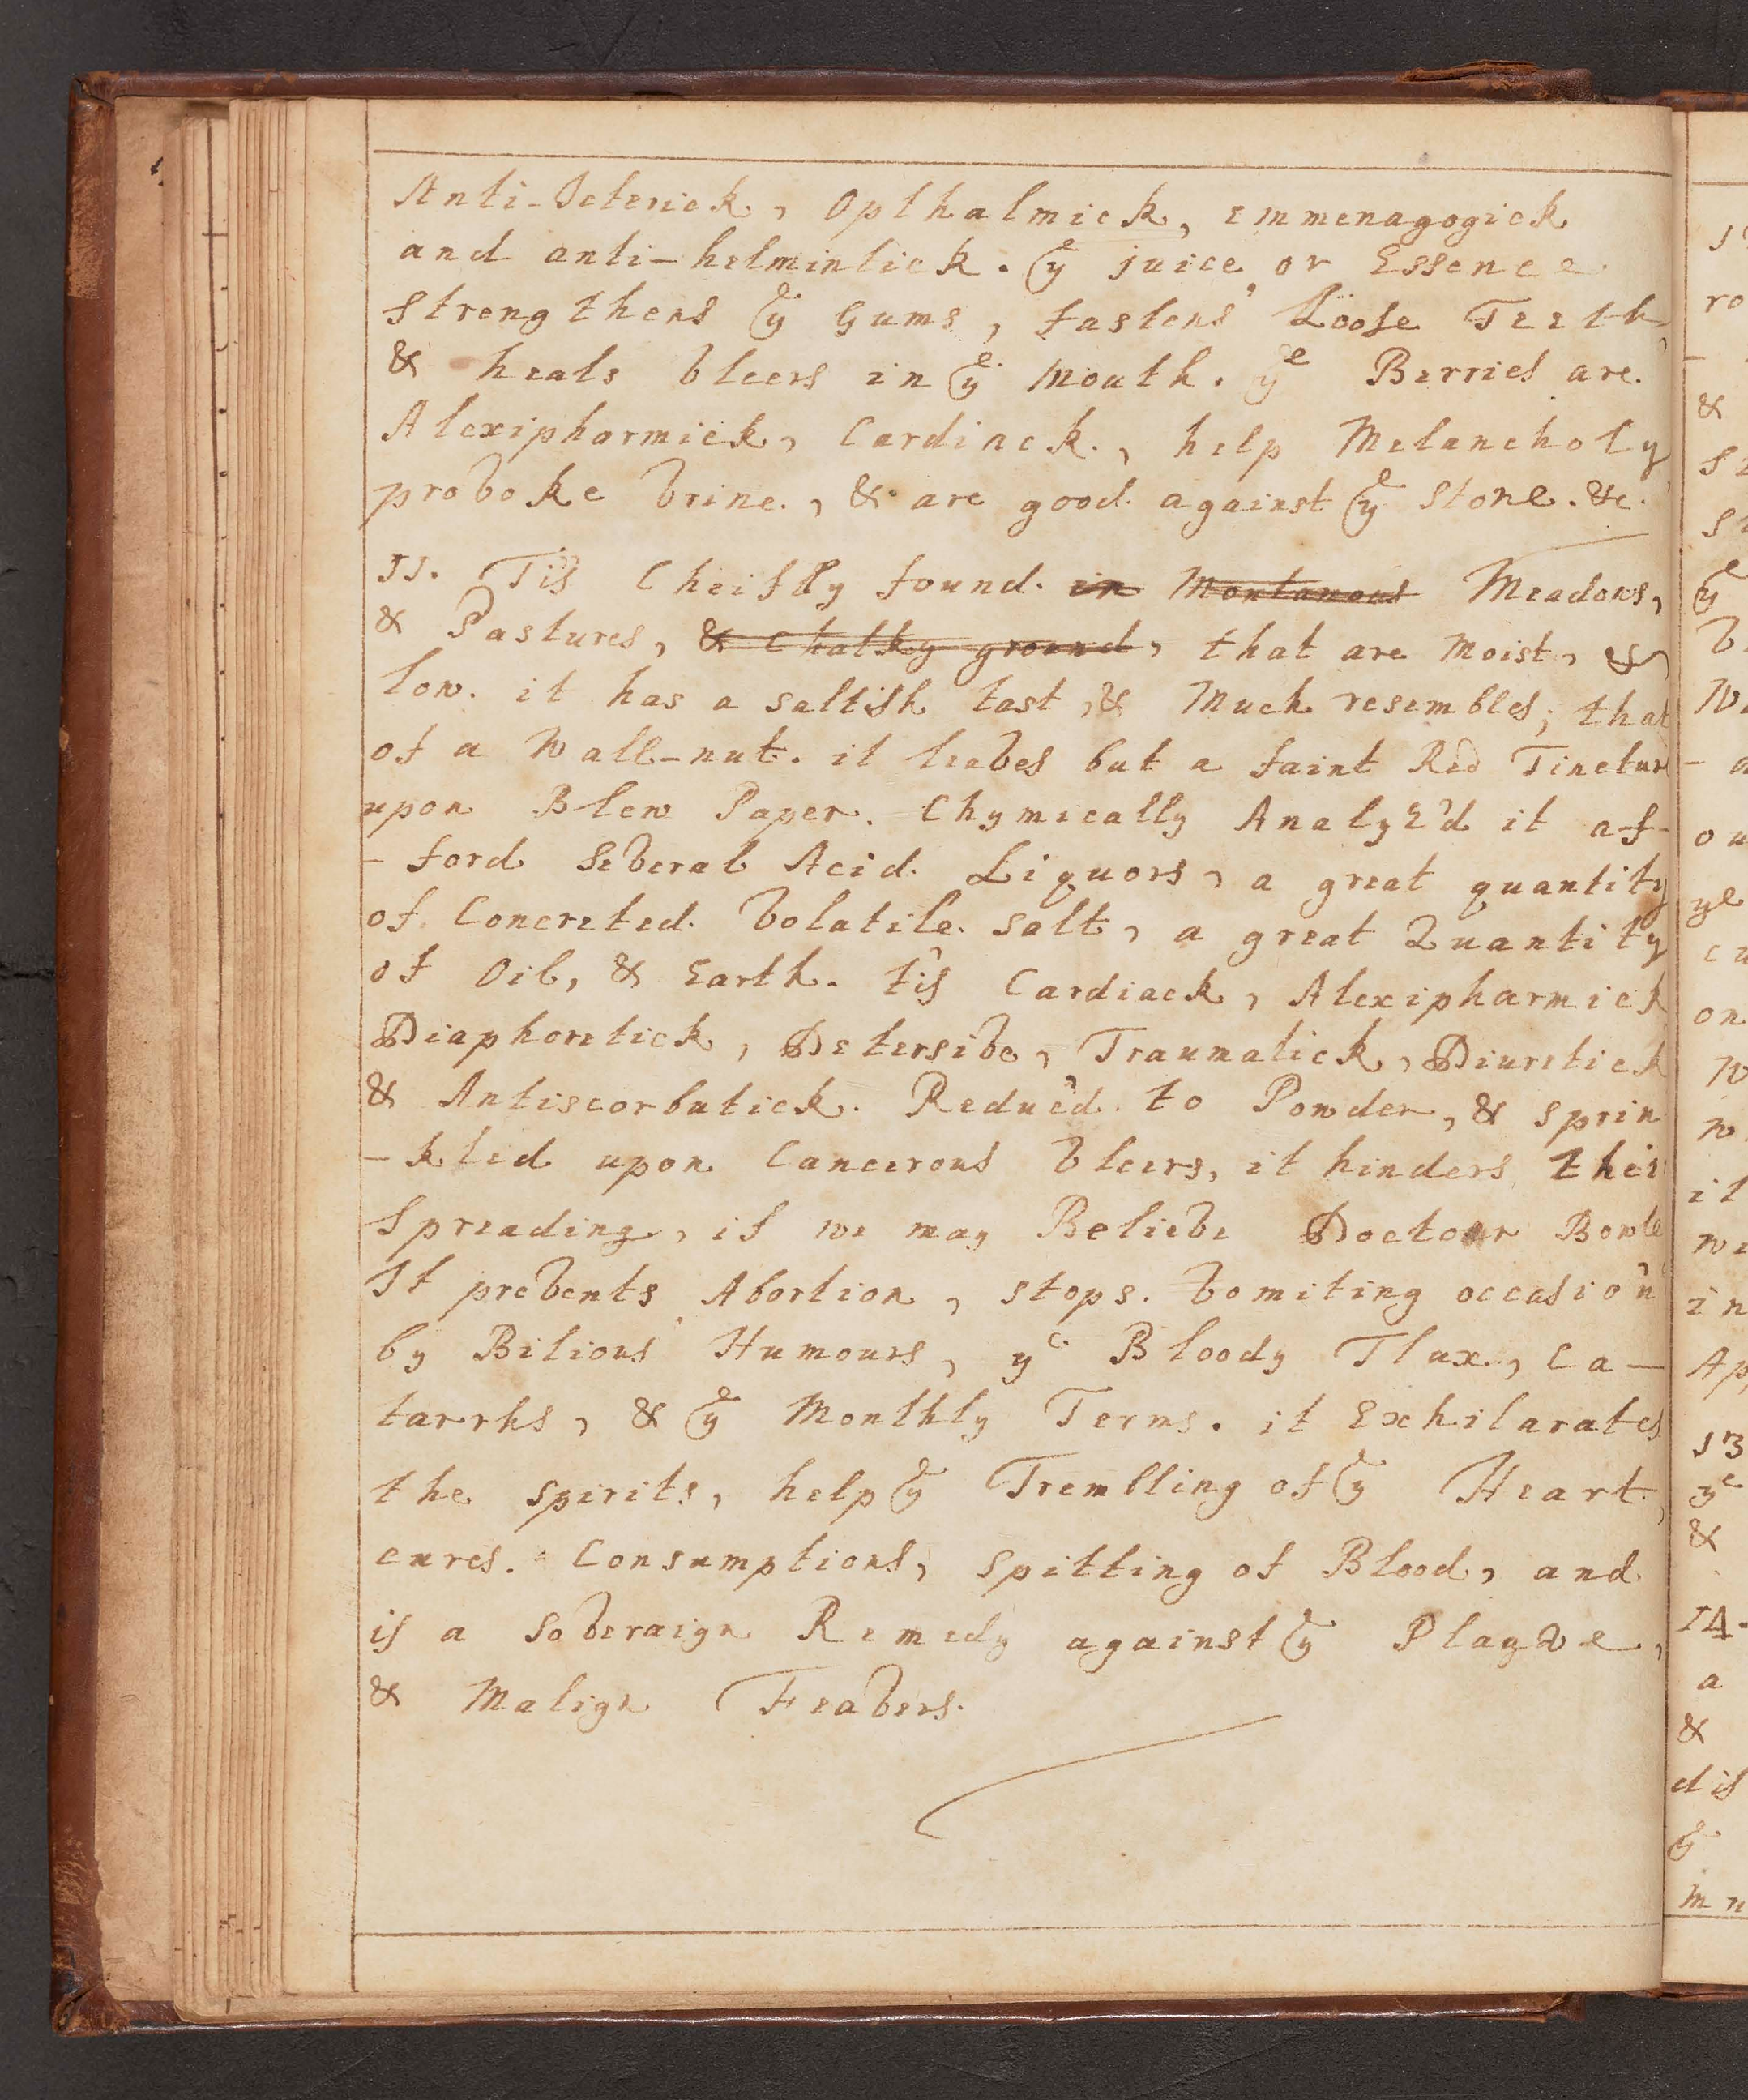 Anti-Icterick, Opthalmick, emmenagogick
and anti-helmintick. ye juice, or Essence
strengthens ye Gums, fastens Loose Teeth,
& heals Vlcers in ye Mouth. ye Berries are
Alexipharmick, Cardiack, help Melancholy
provoke Vrine, & are good against ye Stone. &c.
11. Tis Cheifly found in Montanous Meadows,
& Pastures, & Chalky ground, that are Moist, &
low. it has a saltish tast, & Much resembles, that
of a Wall-nut. it leaves but a faint Red Tinctur
upon Blew Paper. Chymically Analyz'd it af-
-ford several Acid Liquors, a great quantity
of Concreted Volatile Salt, a great Quantity
of Oil, & Earth. ti's Cardiack, Alexipharmick
Diaphoretick, Detersive, Traumatick, Diuretick
& Antiscorbutick. Reduc'd to Powder, & sprin
-kled upon Cancerous Vlcers, it hinders their
Spreading, if we may Believe Doctour Bowle
It prevents Abortion, stops Vomiting occasio'n
by Bilious Humours, ye Bloody Flux, Ca-
tarrhs, & ye Monthly Terms. it Exhilarates
the spirits, help ye Trembling of ye Heart,
cures Consumptions, spitting of Blood, and
is a Soveraign Remedy against ye Plague,
& Malign Feavers.